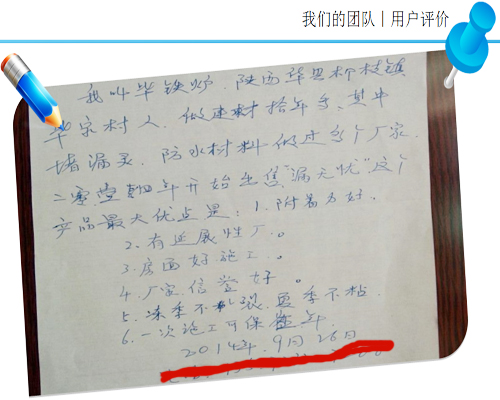 我们的团队 | 用户评价
我叫毕铁炉.陕西华县柳枝镇
毕家村人.做建材拾年多.其中
堵漏灵.防水材料做过多个厂家.
二零壹 年开始出售"漏无忧"这个
产品最大优点是:1.附着力好.
2.有延展性 。
3.房面好施工。
4.厂家信誉好。
5.冻季不 裂.夏季不粘.
6.一次施工可保 年.
2014年.9月26日